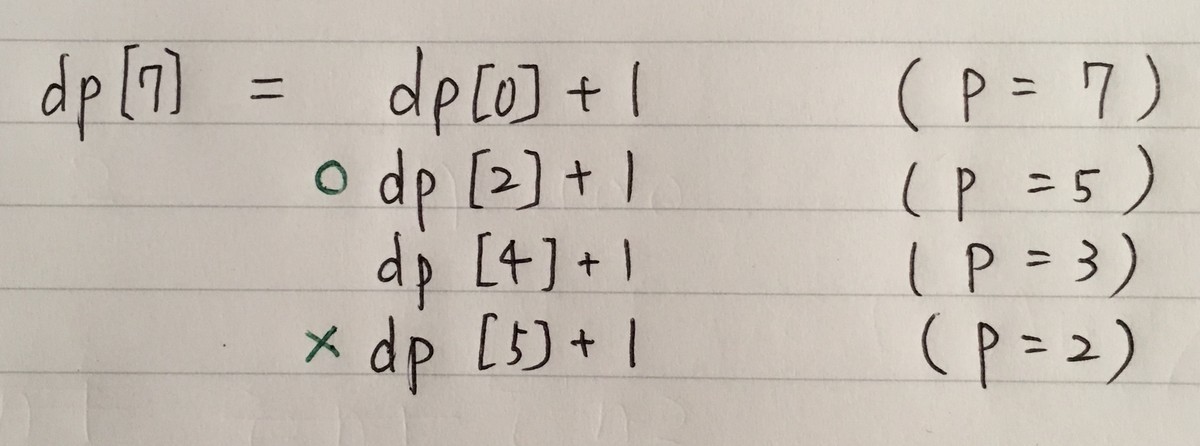 dp[7] = dp[0] + 1 (P = 7)
○ dp [2] + 1 (P = 5)
dp [4] + 1 (P = 3)
× dp [5] + 1 (P = 2)